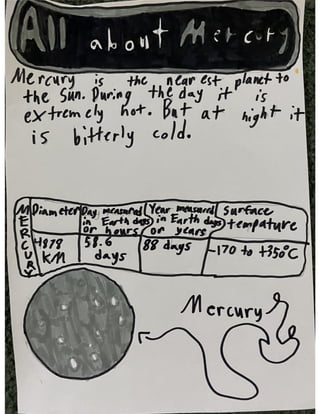 All about Mercury
Mercury is the nearest planet to
the Sun. During the day it is
extremely hot. But at night it
is bitterly cold.
MERCURY
Diameter
Day measured
in Earth days
or hours
Year measured
in Earth days
or years
Surface
tempature
4878
KM
58.6
days
88 days
-170 to +350°C
Mercury